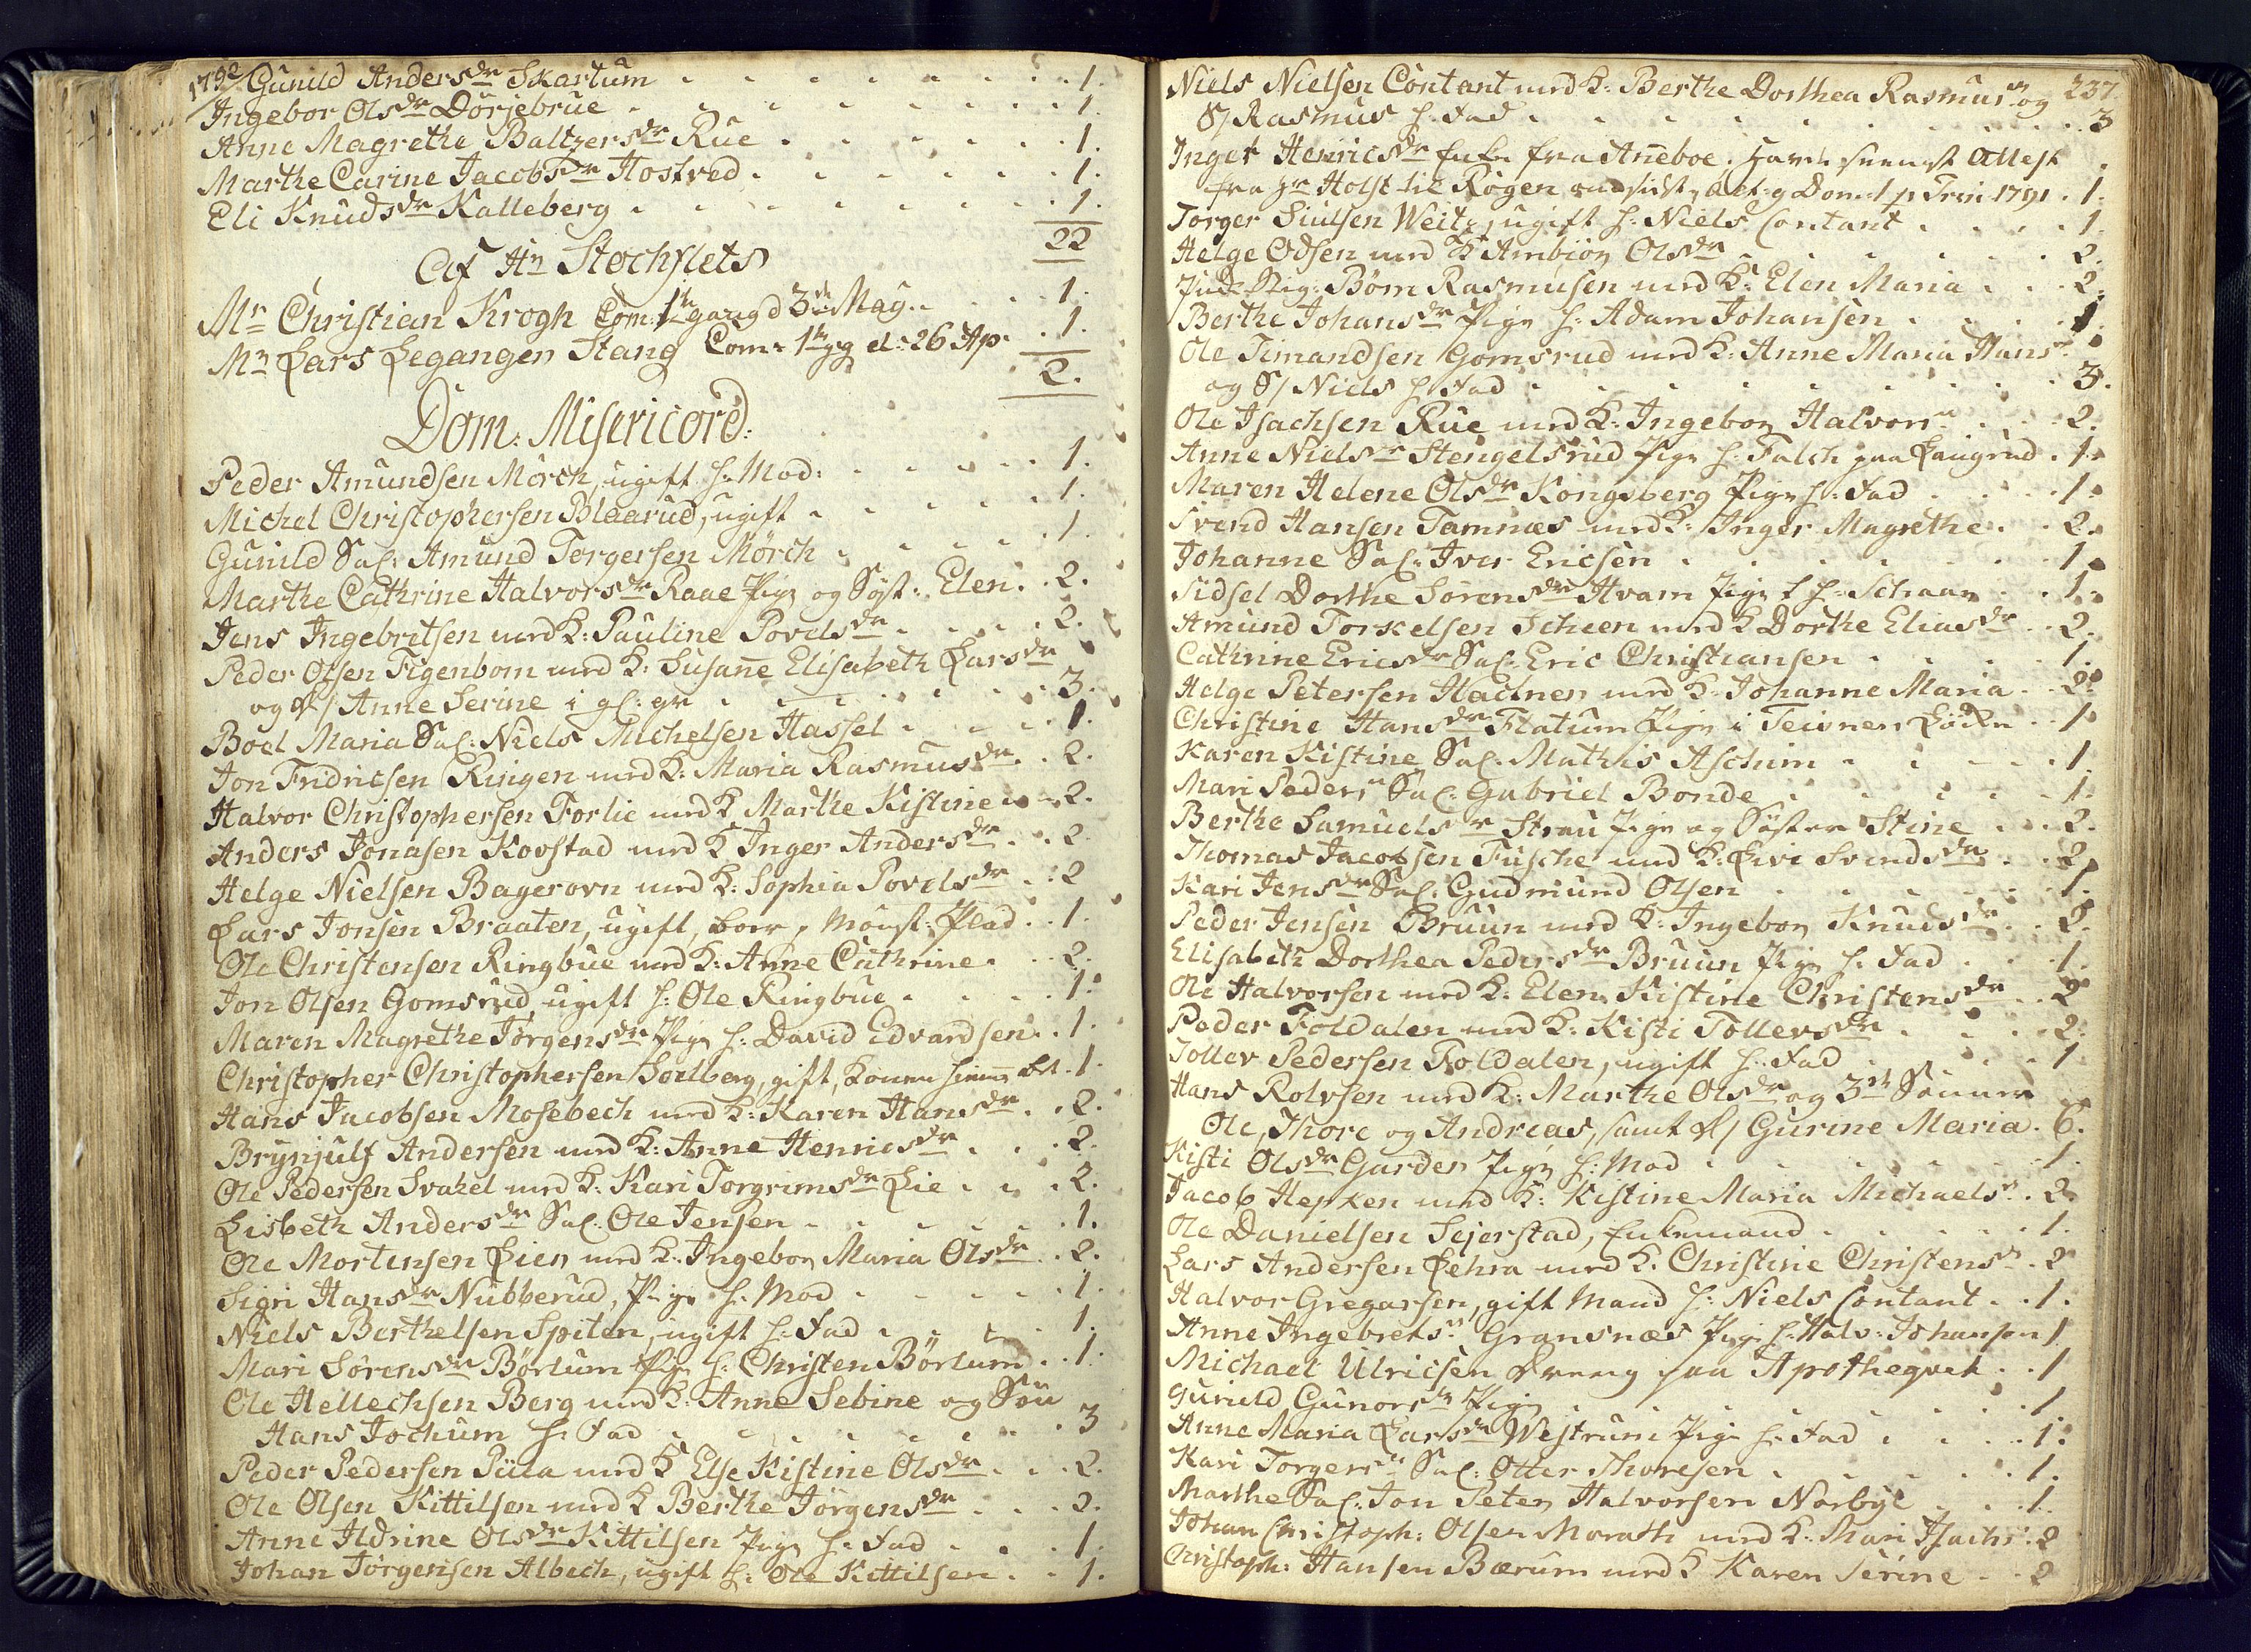 1792. Gunild Andersdr Skartum . . . 1.
Ingebor Olsdr Dörjebrue . . . 1.
Anne Magrethe Baltzersdr Rue . . . 1.
Marthe Carine Jacobsdr Hostved . . . 1.
Eli Knudsdr Kalleberg . . . 1.
22
Af Hr Stochflets
Mr Christian Krogh Com: 1te gang d 3die Mag. . . 1.
Mr Lars Legangen Stang Com: 1te gg d: 26 Ap. . 1.
2.
Dom: Misericord:
Peder Amundsen Mörch, ugift h: Mod: . . . 1.
Michel Christophersen Blaarud, ugift . . . 1.
Gunild Sal: Amund Torgersen Mörch . . . 1.
Marthe Cathrine Halvorsdr Raae Pige og Syst: Elen. . 2.
Jens Ingebretsen med K: Pauline Povelsdr . . . 2.
Peder Olsen Figenbom med K: Susanne Elisabeth Larsdr
og D/ Anne Serine i gl: gr . . . 3.
Boel Maria Sal: Niels Michelsen Hassel . . . 1.
Jon Fridricsen Ringen med K: Maria Rasmusdr . . 2.
Halvor Christophersen Forlie med K Marthe Kistine . . 2.
Anders Jonasen Kovstad med K Inger Andersdr . . 2.
Helge Nielsen Bagerovn med K: Sophia Povelsdr . . 2
Lars Jonsen Braaten, ugift, boer p Mönst: Plad . . 1.
Ole Christensen Ringbue med K: Anne Cathrine . . 2.
Jon Olsen Gomsrud, ugift h: Ole Ringbue . . . 1.
Maren Magrethe Jörgensdr Pige h: David Edvardsen . . 1.
Christopher Christophersen Soelberg, gift, Konen hiemme 1.
Hans Jacobsen Mosebech med K: Karen Hansdr . . 2.
Brynjulf Andersen med K: Anne Henricsdr . . . 2.
Ole Pedersen Svakel med K: Kari Torgrimsdr Lie . . 2.
Lisbeth Andersdr Sal: Ole Jensen . . . 1.
Ole Mortensen Lien med K: Ingebor Maria Olsdr . . 2.
Sigri Hansdr Nubberud, Pige h: Mod . . . 1.
Niels Berthelsen Spiten, ugift h: Fad . . . 1.
Mari Sörensdr Börtum Pige h: Christen Börtum . . 1.
Ole Hellechsen Berg med K: Anne Sebine og Sön
Hans Jochum h: Fad . . . 3
Peder Pedersen Püta med K Else Kistine Olsdr . . . 2.
Ole Olsen Kittilsen med K Berthe Jörgensdr . . . 2.
Anne Hdrine Olsdr Kittilsen Pige h: Fad . . . 1.
Johan Jörgensen Albech, ugift h: Ole Kittilsen . . 1.
237
Niels Nielsen Contant med K: Berthe Dorthea Rasmusdr og
S/ Rasmus h: Fad . . . 3
Inger Henricsdr Enke fra Aneboe. Havde skrevet Attest
fra Hr Holst til Rögen Dom: 1 p Trin: 1791 . 1.
Torger Siulsen Weitz, ugift h: Niels Contant . . . 1.
Helge Odsen med K Ambjör Olsdr . . . 2.
Böm Rasmusen med K: Elen Maria . . . 2.
Berthe Johansdr Pige h: Adam Johansen . . . 1.
Ole Timandsen Gomsrud med K: Anne Maria Hansdr
og S/ Niels h: Fad . . . 3.
Ole Isachsen Rue med K: Ingebor Halvorsdr . . . 2.
Anne Nielsdr Stengelsrud Pige h: Falch paa Laugrud . 1.
Maren Helene Olsdr Kongsberg Pige h: Fad . . . 1.
Svend Hansen Tamnæs med K: Inger Magrethe . . 2.
Johanne Sal: Iver Ericsen . . . 1.
Sidsel Dorthe Sörensdr Hvam Pige h: Schaar . . 1.
Amund Torkelsen Scheen med K Dorthe Eliasdr . . 2.
Cathrine Ericsdr Sal: Eric Christiansen . . . 1.
Helge Petersen Hadner med K: Johanne Maria . . 2.
Christine Hansdr Flatum Pige i Teisner Löcken . . 1.
Karen Kistine Sal: Mathis Aschim . . . 1.
Mari Pedersdr Sal: Gabriel Bonde . . . 1.
Berthe Samuelsdr Strau Pige og Söster Stine . . . 2.
Thomas Jacobsen Fusche med K: Live Svendsdr . . 2.
Kari Jensdr Sal: Gudmund Olsen . . . 1.
Peder Jensen Bruun med K: Ingebor Knudsdr . . 2.
Elisabeth Dorthea Pedersdr Bruun Pige h: Fad . . . 1.
Ole Halvorsen med K: Elen Kistine Christensdr . . 2
Peder Foldalen med K: Kisti Tollevsdr . . . 2.
Tollev Pedersen Foldalen, ugift h: Fad . . . 1
Hans Rolvsen med K: Marthe Olsdr og 3de Sönner
Ole, Thore og Andreas, samt D/ Gurine Maria . 6.
Kisti Olsdr Garder Pige h: Mod . . . 1.
Jacob Hepken med K: Kistine Maria Michaelsdr . 2.
Ole Danielsen Sejerstad, Enkemand . . . 1.
Lars Andersen Lehra med K: Christine Christensdr . 2
Halvor Gregarsen, gift Mand h: Niels Contant . . 1.
Anne Ingebretsdr Gransnæs Pige h: Halv: Johansen 1
Michael Ulricsen Dreng paa Apotheqvet . . 1
Gunild Gunorsdr Pige . . . 1
Anne Maria Larsdr Westrum Pige h: Fad . . . 1.
Kari Torgersdr Sal: Otter Thoresen . . . 1.
Marthe Sal: Jon Peter Halvorsen Norbye . . . 1.
Johan Christoph: Olsen Morath med K: Mari Isachsdr . 2
Christoph: Hansen Bærum med K Karen Serine . . 2